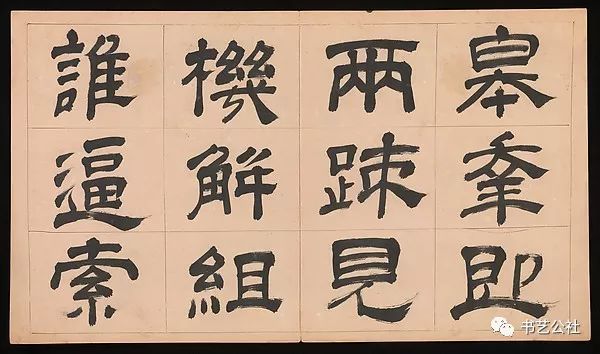 皋幸即
兩踈見
機解組
誰逼索
书艺公社